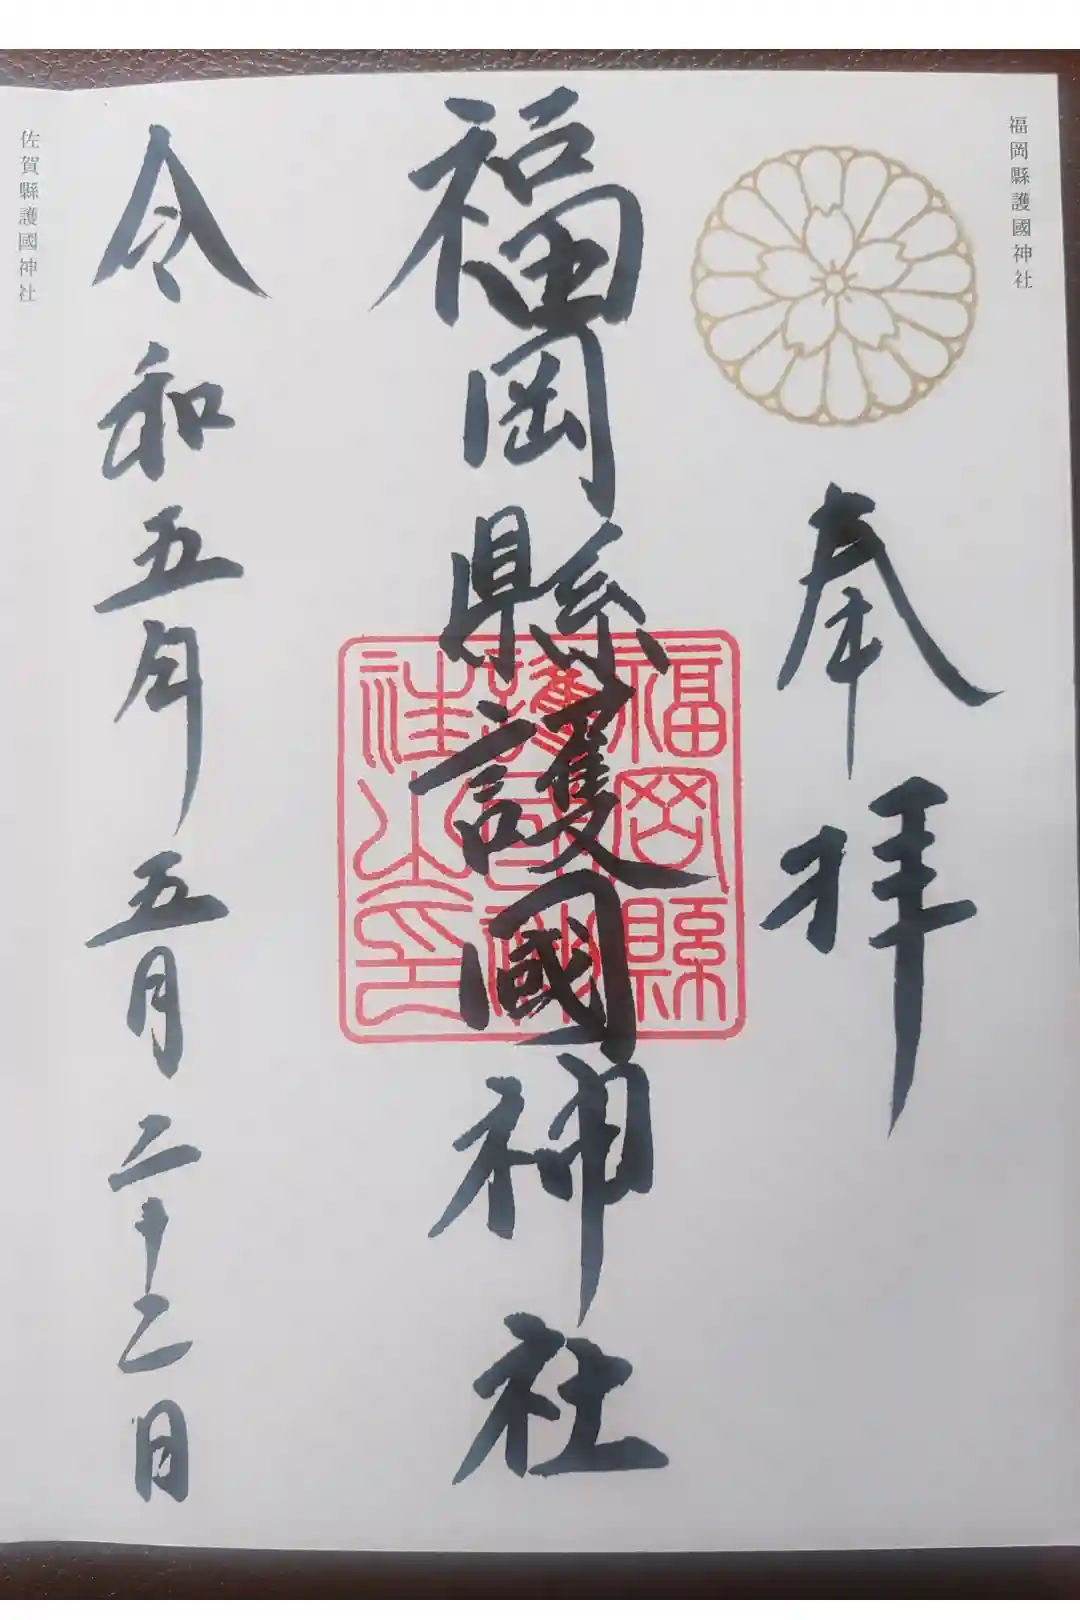 福岡縣護國神社
奉拝
福岡縣護國神社
福岡縣
護國神
社之印
令和五年五月二十二日
佐賀縣護國神社